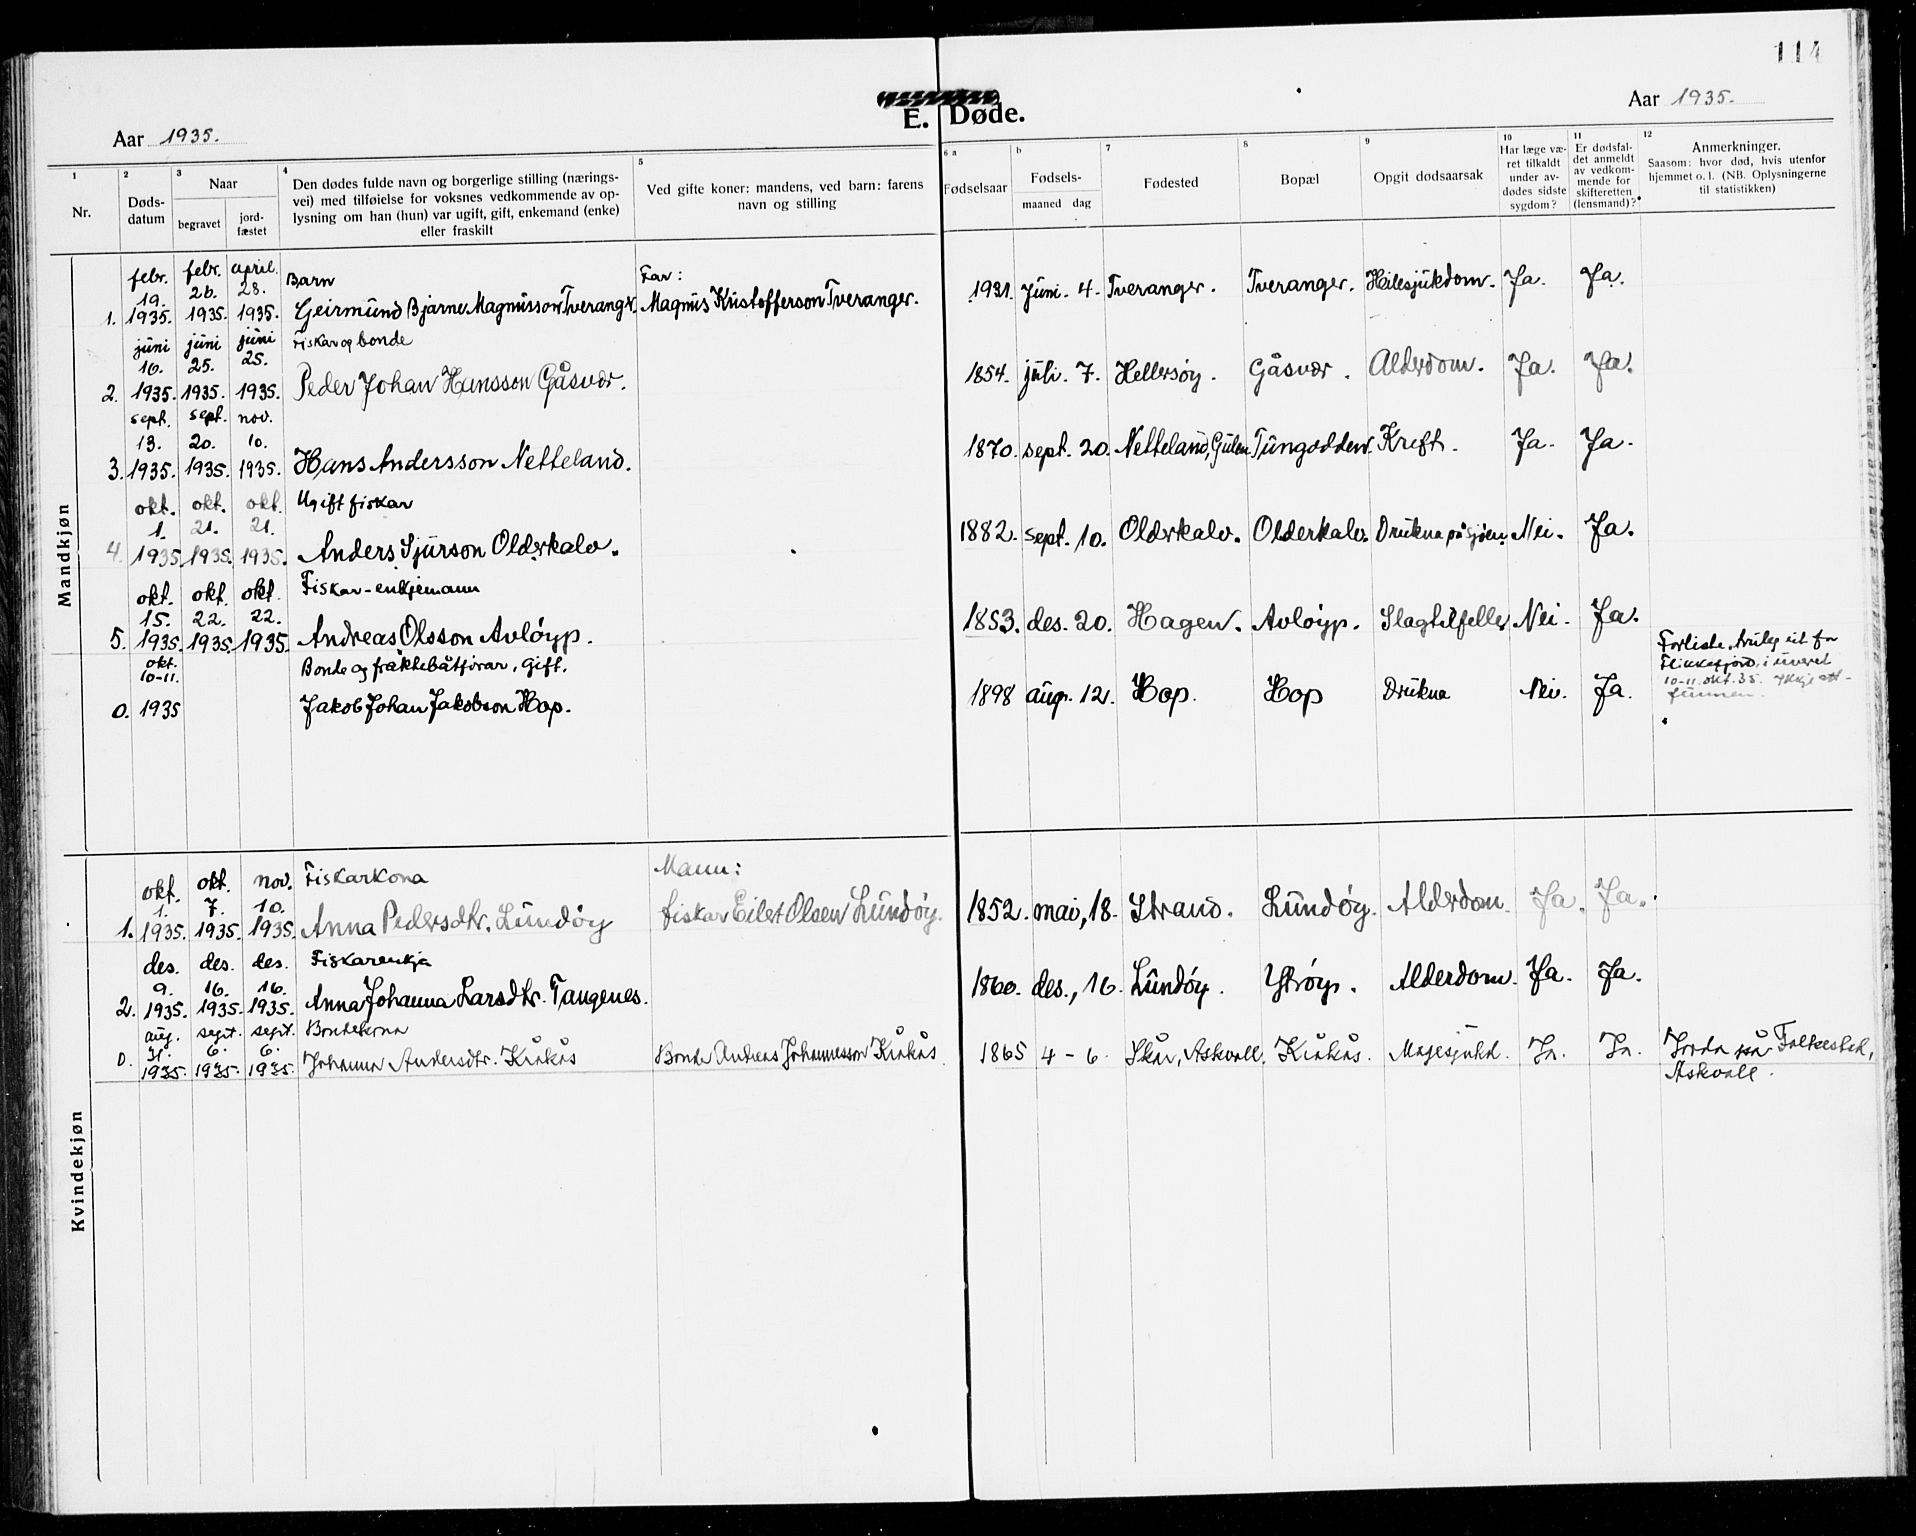 114
E. Døde.
Aar 1935.
Aar 1935.
1
Nr.
2
Døds-
datum
3
Naar
begravet
jord-
fæstet
4
Den dødes fulde navn og borgerlige stilling (nærings-
vei) med tilføielse for voksnes vedkommende av op-
lysning om han (hun) var ugift, gift, enkemand (enke)
eller fraskilt
5
Ved gifte koner: mandens, ved barn: farens
navn og stilling
6 a
Fødselsaar
b
Fødsels-
maaned dag
7
Fødested
8
Bopæl
9
Opgit dødsaarsak
10
Har læge væ-
ret tilkaldt
under av-
dødes sidste
sygdom?
11
Er dødsfal-
det anmeldt
av vedkom-
mende for
skifteretten
(lensmand)?
12
Anmerkninger.
Saasom: hvor død, hvis utenfor
hjemmet o. l. (NB. Oplysningerne
til statistikken)
Mandkjøn
febr. febr. april. Barn Far:
19. 26. 28.
1. 1935. 1935. 1935. Geirmund Bjarne Magnusson Tveranger. Magnus Kristofferson Tveranger. 1931. Juni. 4. Tveranger. Tveranger. Heilesjukdom. Ja. Ja.
juni juni juni Fiskar og bonde
16. 25. 25.
2. 1935. 1935. 1935. Peder Johan Hansson Gåsvær. 1854. juli. 7. Hellersøy. Gåsvær. Alderdom. Ja. Ja.
sept. sept. nov.
13. 20. 10.
3. 1935. 1935. 1935. Hans Andersson Netteland. 1870. sept. 20. Netteland, Gulen Tungodden. Kreft. Ja. Ja.
okt. okt. okt. Ugift fiskar
1. 21. 21.
4. 1935. 1935. 1935. Anders Sjurson Olderkalv. 1882. sept. 10. Olderkalv. Olderkalv. Drukna på sjøen. Nei. Ja.
okt. okt. okt. Fiskar - enkjemann
15. 22. 22.
5. 1935. 1935. 1935. Andreas Olsson Avløyp. 1853. des. 20. Hagen. Avløyp. Slagtilfelle. Nei. Ja.
okt. Bonde og fraktebåtførar, Gift.
10-11.
0. 1935 Jakob Johan Jakobson Hop. 1898 aug. 12. Hop. Hop Drukna Nei. Ja.
Forliste truleg ut for
Flikkefjord, i uveret
10-11. okt. 35. Ikkje att-
funnen.
Kvindekjøn
okt. okt. nov. Fiskarkona Mann:
1. 7. 10.
1. 1935. 1935. 1935. Anna Pedersdtr. Lundøy Fiskar Eilet Olsen Lundøy. 1852. mai, 18. Strand. Lundøy. Alderdom. Ja. Ja.
des. des. des. Fiskarenkja
9. 16. 16.
2. 1935. 1935. 1935. Anna Johanna Larsdtr. Tangenes. 1860. des., 16. Lundøy. Ytrøyg. Alderdom. Ja. Ja.
aug. sept. sept. Bondekona
31. 6. 6.
0. 1935. 1935. 1935. Johanna Andersdtr. Kråkås Bonde Andreas Johannesson Kråkås. 1865 4 - 6. Skår, Askvoll. Kråkås. Magesjukd. Ja. Ja. Jorda på Folkestad,
Askvoll.